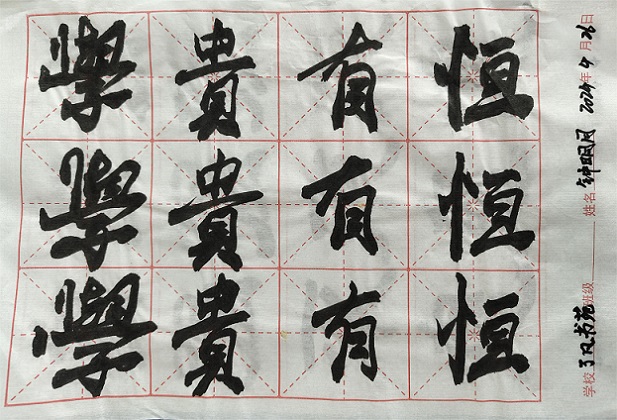 學貴有恒
學貴有恒
學貴有恒
学校 了凡书苑 班级 姓名 钟明月 2024年4月26日